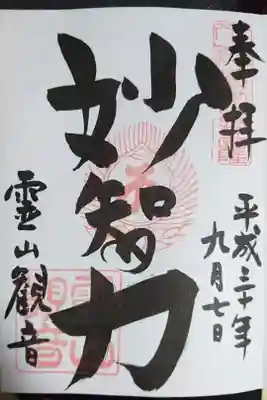 奉拝
平成三十年
九月七日
妙智力
霊山観音